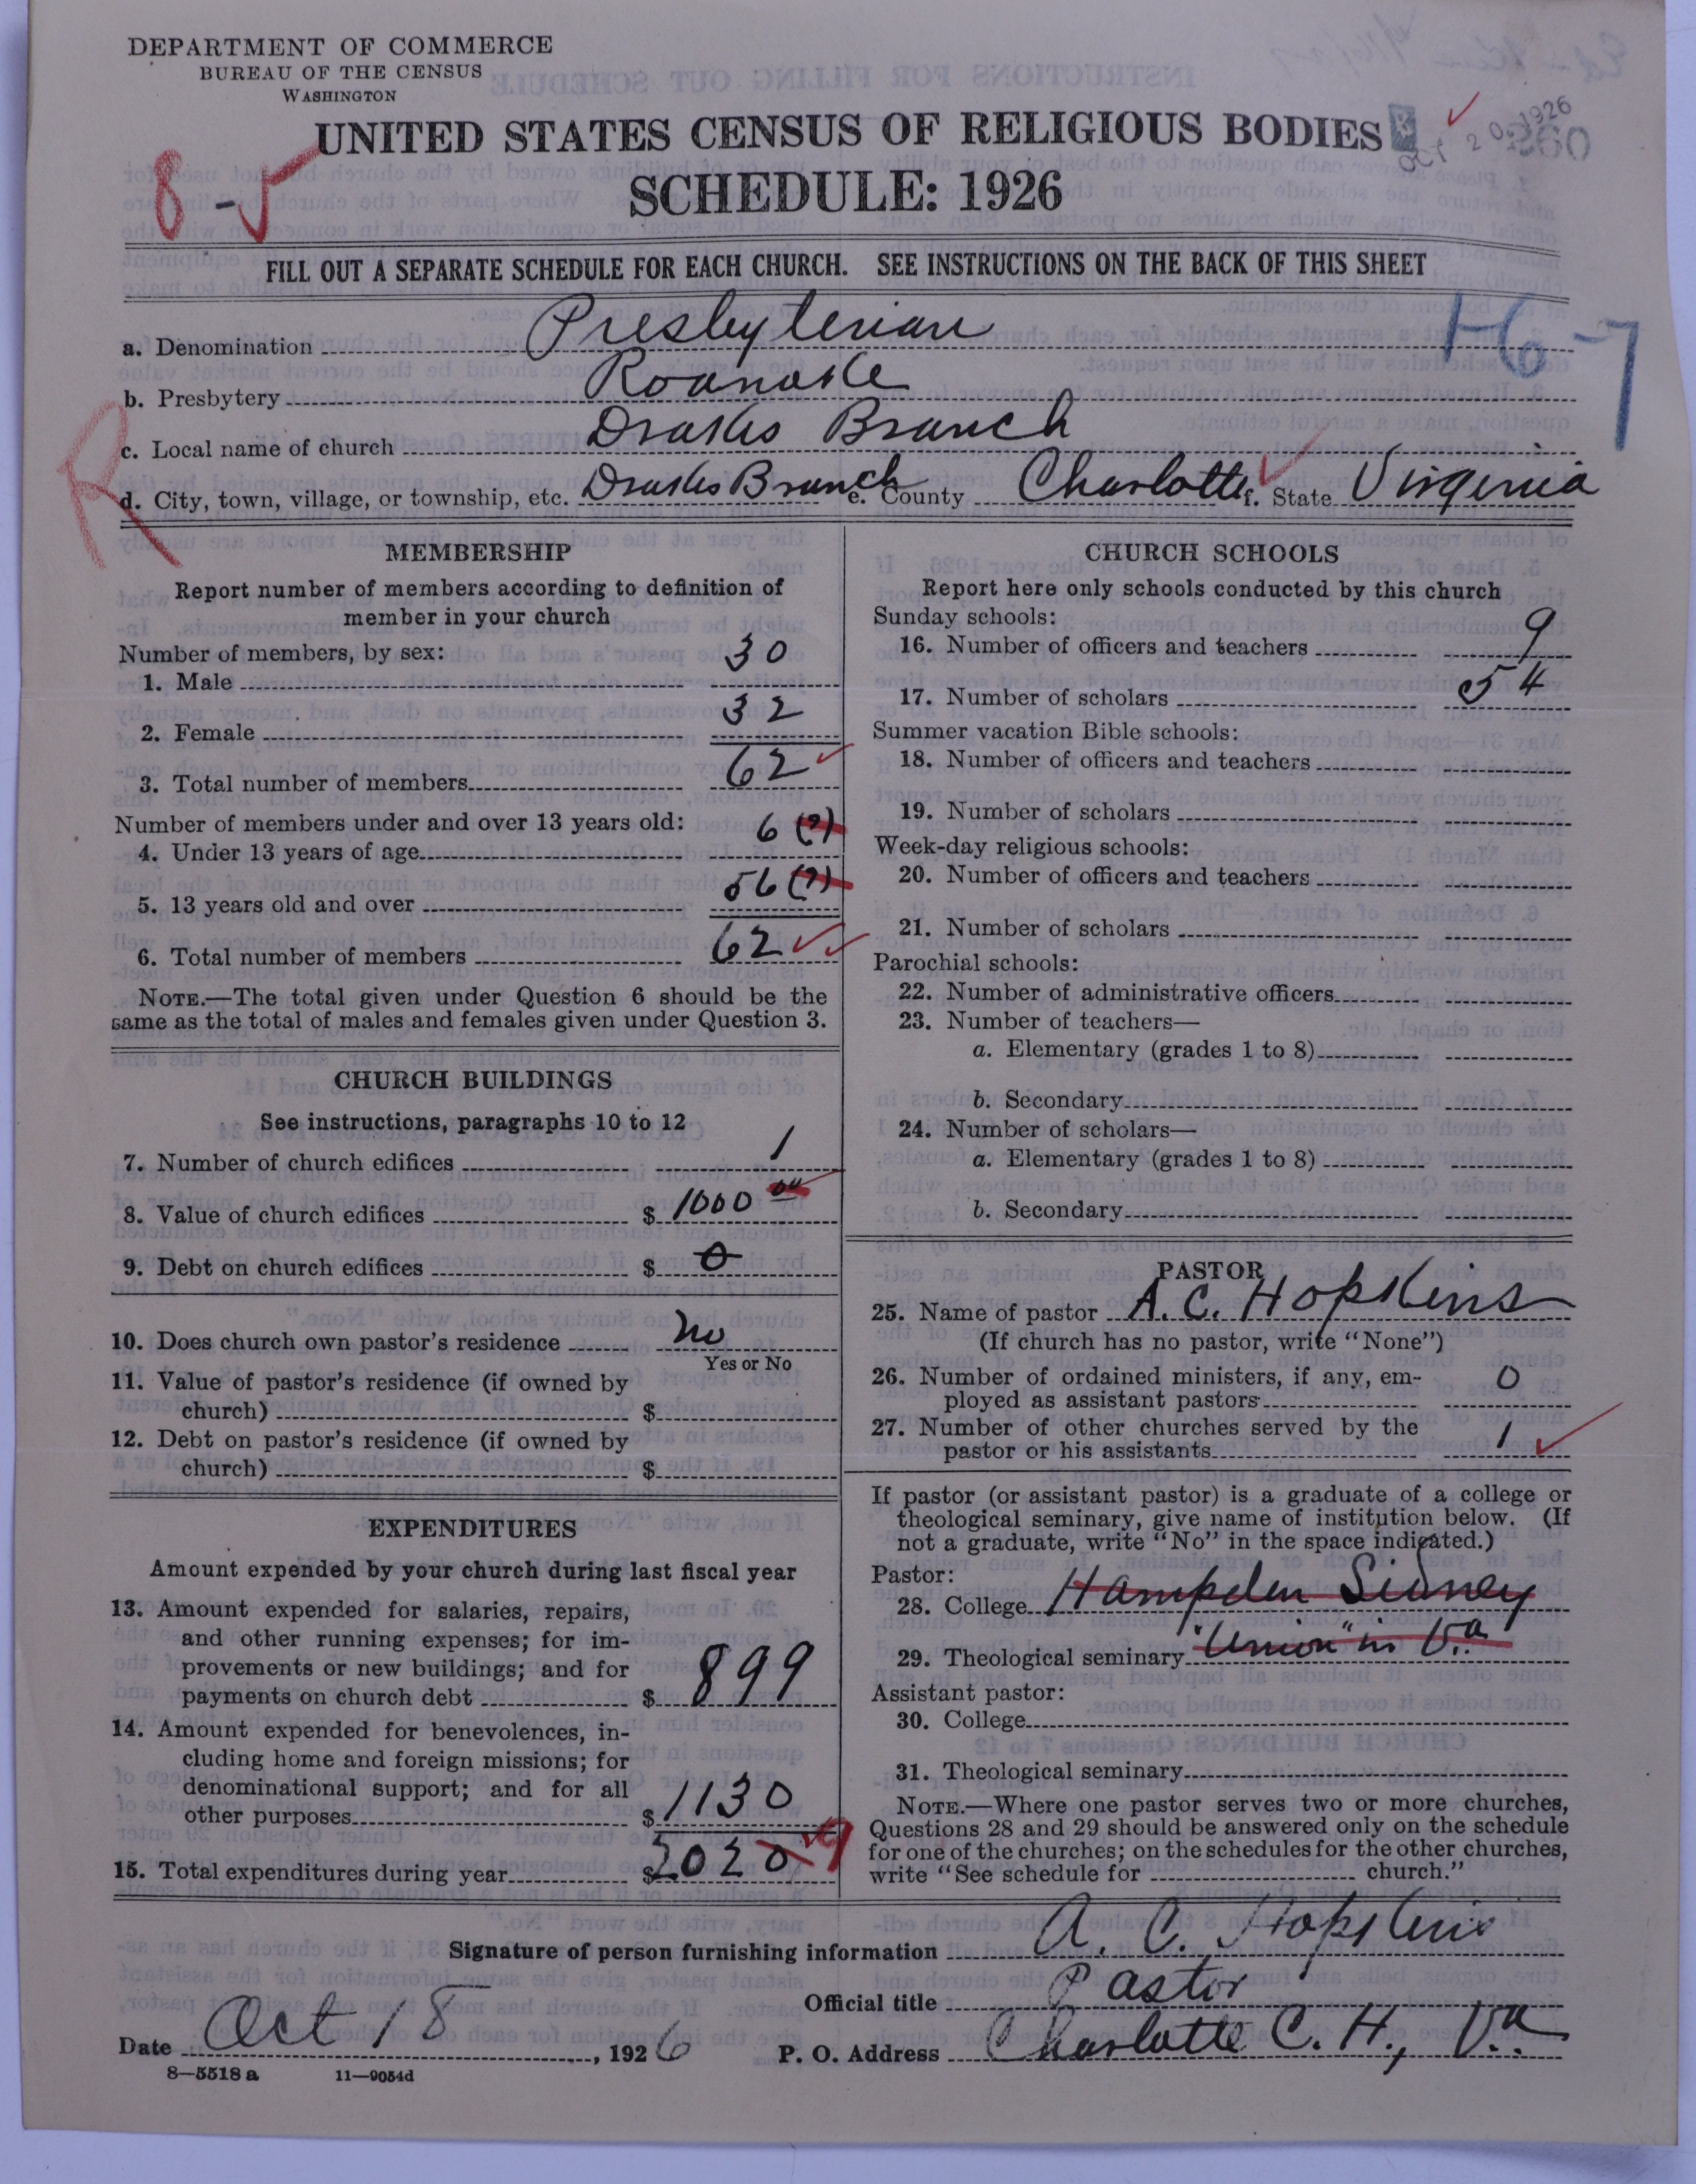 DEPARTMENT OF COMMERCE
BUREAU OF THE CENSUS
WASHINGTON
UNITED STATES CENSUS OF RELIGIOUS BODIES
OCT 20 1926
SCHEDULE: 1926
8-5
FILL OUT A SEPARATE SCHEDULE FOR EACH CHURCH. SEE INSTRUCTIONS ON THE BACK OF THIS SHEET
a. Denomination Presbyterian
b. Presbytery Roanoke
c. Local name of church Drakes Branch
d. City, town, village, or township, etc. Drakes Branch e. County Charlotte f. State Virginia
R
MEMBERSHIP
Report number of members according to definition of
member in your church
Number of members, by sex:
1. Male 30
2. Female 32
3. Total number of members 62
Number of members under and over 13 years old:
4. Under 13 years of age 6 (?)
5. 13 years old and over 56 (?)
6. Total number of members 62
NOTE.—The total given under Question 6 should be the
same as the total of males and females given under Question 3.
CHURCH BUILDINGS
See instructions, paragraphs 10 to 12
7. Number of church edifices 1
8. Value of church edifices $ 1000 00
9. Debt on church edifices $ 0
10. Does church own pastor's residence No
Yes or No
11. Value of pastor's residence (if owned by
church) $
12. Debt on pastor's residence (if owned by
church) $
EXPENDITURES
Amount expended by your church during last fiscal year
13. Amount expended for salaries, repairs,
and other running expenses; for im-
provements or new buildings; and for
payments on church debt $ 899
14. Amount expended for benevolences, in-
cluding home and foreign missions; for
denominational support; and for all
other purposes $ 1130
15. Total expenditures during year $ 2020 9
CHURCH SCHOOLS
Report here only schools conducted by this church
Sunday schools:
16. Number of officers and teachers 9
17. Number of scholars 54
Summer vacation Bible schools:
18. Number of officers and teachers
19. Number of scholars
Week-day religious schools:
20. Number of officers and teachers
21. Number of scholars
Parochial schools:
22. Number of administrative officers
23. Number of teachers—
a. Elementary (grades 1 to 8)
b. Secondary
24. Number of scholars—
a. Elementary (grades 1 to 8)
b. Secondary
PASTOR
25. Name of pastor A. C. Hopkins
(If church has no pastor, write "None")
26. Number of ordained ministers, if any, em-
ployed as assistant pastors 0
27. Number of other churches served by the
pastor or his assistants 1
If pastor (or assistant pastor) is a graduate of a college or
theological seminary, give name of institution below. (If
not a graduate, write "No" in the space indicated.)
Pastor:
28. College Hampden Sidney
29. Theological seminary "Union" in Va.
Assistant pastor:
30. College
31. Theological seminary
NOTE.—Where one pastor serves two or more churches,
Questions 28 and 29 should be answered only on the schedule
for one of the churches; on the schedules for the other churches,
write "See schedule for church."
Signature of person furnishing information A. C. Hopkins
Official title Pastor
Date Oct 18, 1926 P. O. Address Charlotte C. H., Va.
8—5518 a 11—9054d